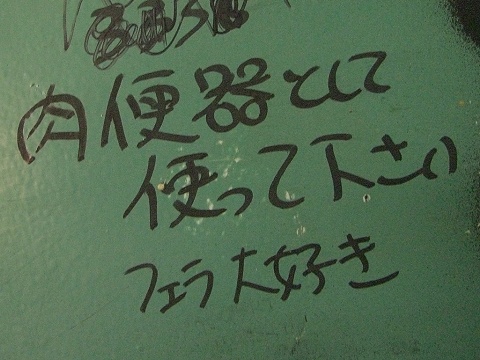 肉便器として
使って下さい
フェラ大好き